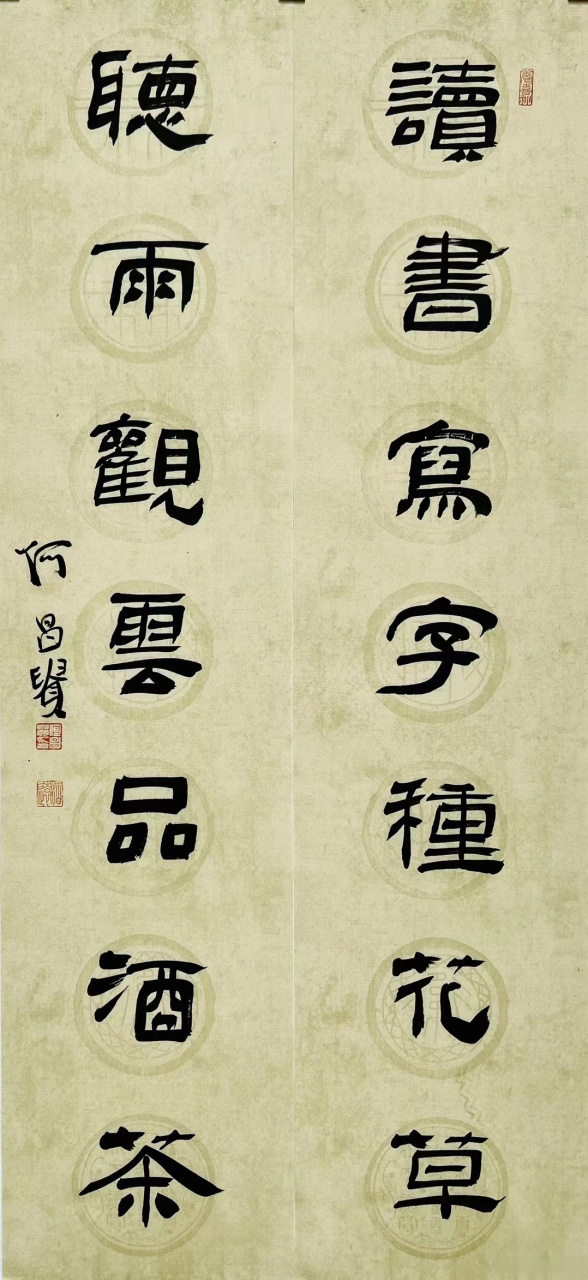 讀書寫字種花草
聽雨觀雲品酒茶
何昌賢